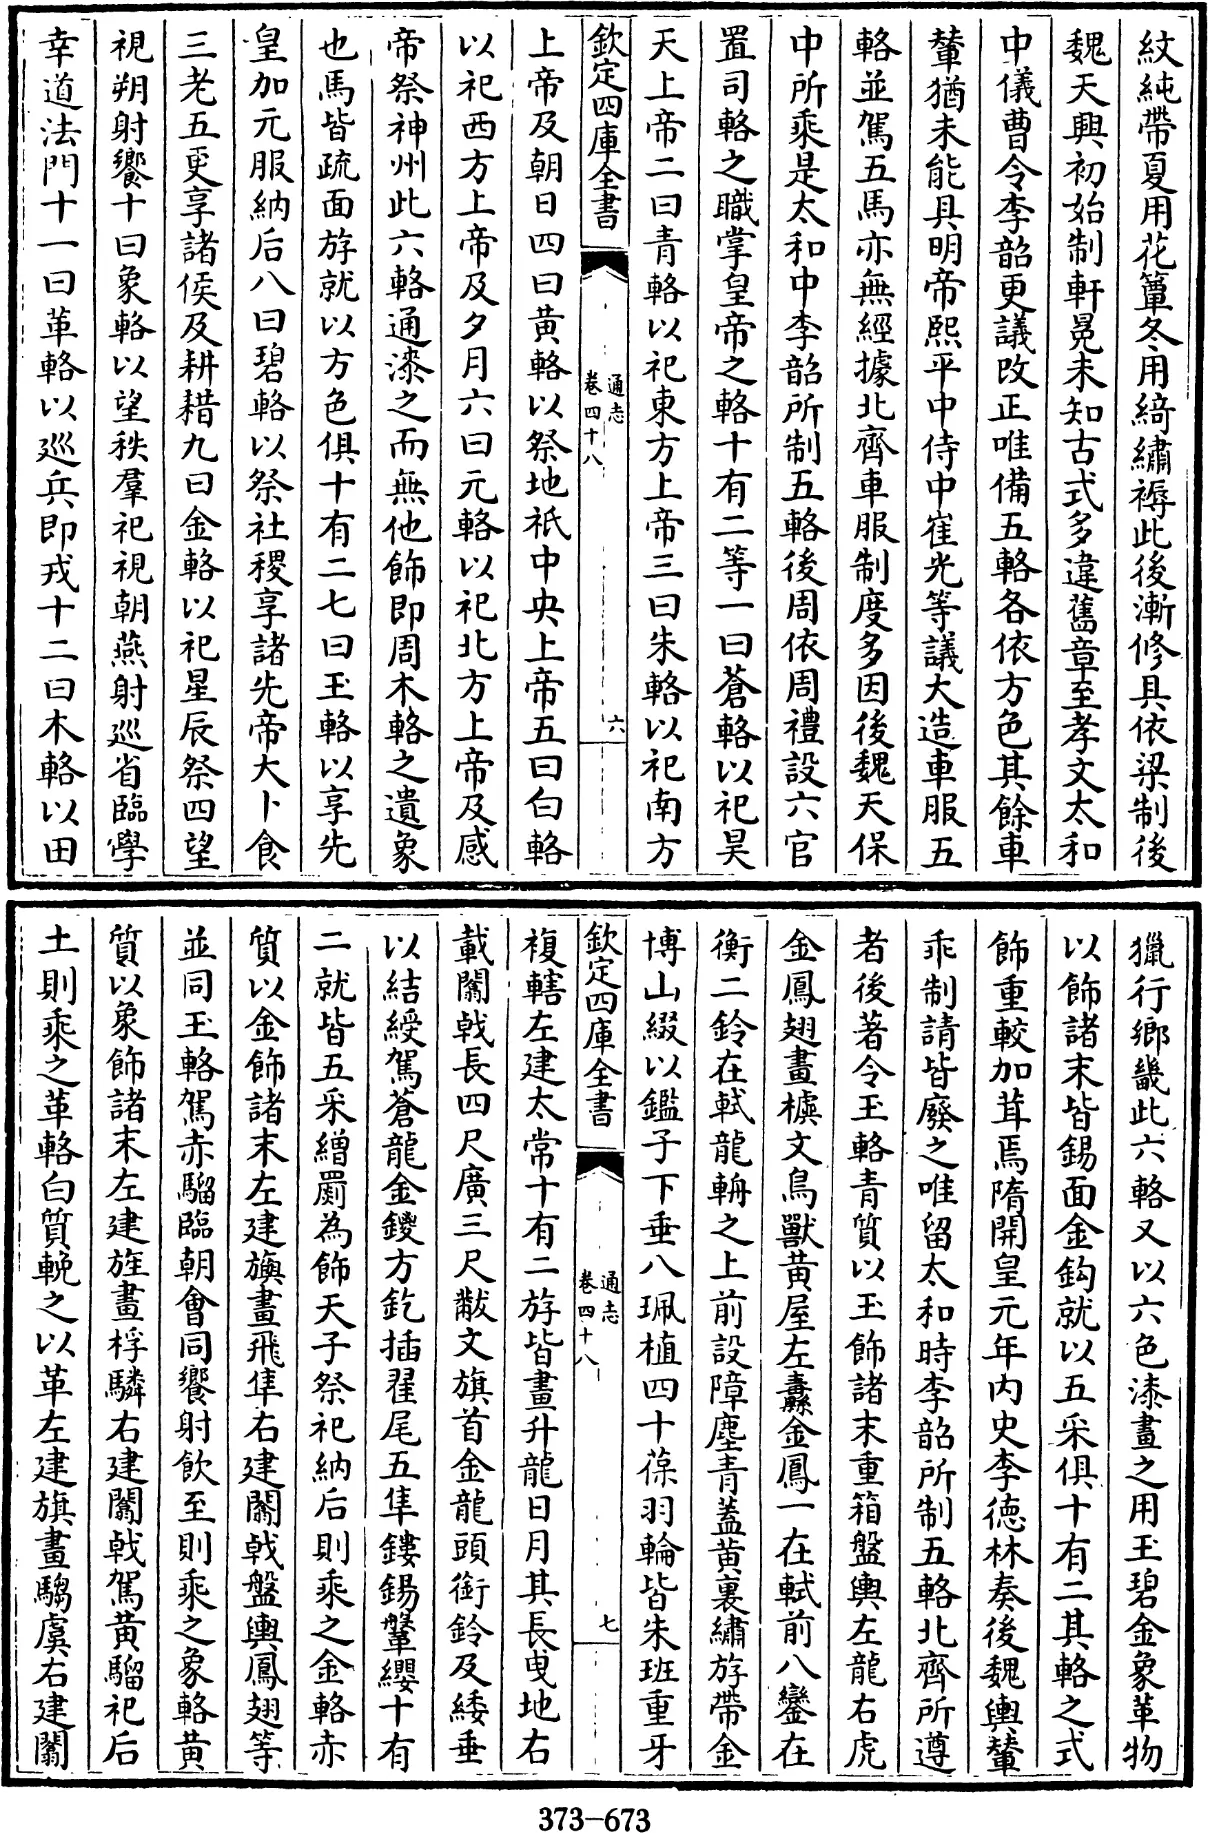 紋純帶夏用花簟冬用綺繡褥此後漸修具依梁制後
魏天興初始制軒冕未知古式多違舊章至孝文太和
中儀曹令李韶更議改正唯備五輅各依方色其餘車
輦猶未能具明帝熙平中侍中崔光等議大造車服五
輅並駕五馬亦無經據北齊車服制度多因後魏天保
中所乘是太和中李韶所制五輅後周依周禮設六官
置司輅之職掌皇帝之輅十有二等一曰蒼輅以祀昊
天上帝二曰青輅以祀東方上帝三曰朱輅以祀南方
欽定四庫全書
通志
卷四十八
六
上帝及朝日四曰黄輅以祭地祇中央上帝五曰白輅
以祀西方上帝及夕月六曰元輅以祀北方上帝及感
帝祭神州此六輅通漆之而無他飾即周木輅之遺象
也馬皆疏面斿就以方色俱十有二七曰玉輅以享先
皇加元服納后八曰碧輅以祭社稷享諸先帝大卜食
三老五更享諸侯及耕耤九曰金輅以祀星辰祭四望
視朔射饗十曰象輅以望秩羣祀視朝燕射巡省臨學
幸道法門十一曰革輅以巡兵即戎十二曰木輅以田
獵行鄉畿此六輅又以六色漆畫之用玉碧金象革物
以飾諸末皆錫面金鈎就以五采俱十有二其輅之式
飾重較加茸焉隋開皇元年内史李德林奏後魏輿輦
乖制請皆廢之唯留太和時李韶所制五輅北齊所遵
者後著令玉輅青質以玉飾諸末重箱盤輿左龍右虎
金鳳翅畫櫖文鳥獸黄屋左纛金鳳一在軾前八鑾在
衡二鈴在軾龍輈之上前設障塵青蓋黄裏繡斿帶金
博山綴以鑑子下垂八珮植四十葆羽輪皆朱班重牙
欽定四庫全書
通志
卷四十八
七
複轄左建太常十有二斿皆畫升龍日月其長曳地右
載闟戟長四尺廣三尺黻文旗首金龍頭銜鈴及緌垂
以結綬駕蒼龍金鍐方釳插翟尾五隼鏤錫鞶纓十有
二就皆五采繒罽為飾天子祭祀納后則乘之金輅赤
質以金飾諸末左建旟畫飛隼右建闟戟盤輿鳳翅等
並同玉輅駕赤騮臨朝會同饗射飲至則乘之象輅黄
質以象飾諸末左建旌畫桴驎右建闟戟駕黄騮祀后
土則乘之革輅白質輓之以革左建旗畫騶虞右建闟
373-673